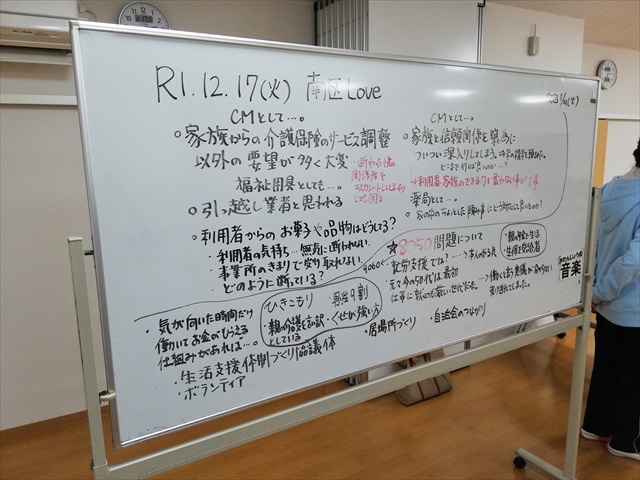 R1.12.17(火) 南区Love
CMとして…。
○家族からの介護保険のサービス調整
以外の要望が多く大変
福祉用具としても…。
○引っ越し業者と思われる
○利用者からのお菓子や品物はどうしてる?
・利用者の気持ち…無下に断れない。
・事業所のきまりで受り取れない。
どのように断っている?
・気が向いた時間だけ
働いてお金がもらえる
仕組みがあれば…。
ひきこもり
・男性9割
・親の介護を
としている
・くせが強い方
・生活支援体制づくり協議体
・ボランティア
CMとして…。
○家族と信頼関係を築く為に
ついつい深入りしてしまう。
→利用者、家族のできる力を奪わない事が大事
薬局として…。
★8050問題について
9060
・就労支援では?
・元々今の50代は最初
仕事に就くのも厳しい世代だった。
・親の年金で生活
・生産を
・居場所づくり
・自治会のつながり
音楽